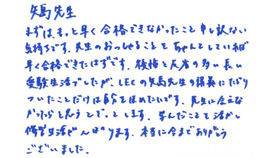 矢島先生
まずは、もっと早く合格できなかったこと申し訳ない
気持ちです。先生のおっしゃることをちゃんとしていれば
早く合格できたはずです。後悔と反省の多い長い
受験生活でしたが、LECの矢島先生の講義にたどり
ついたことだけは自分をほめたいです。先生に会えな
かったらと思うとぞっとします。学んだことを活かし
修習生活がんばります。本当に今までありがとう
ございました。